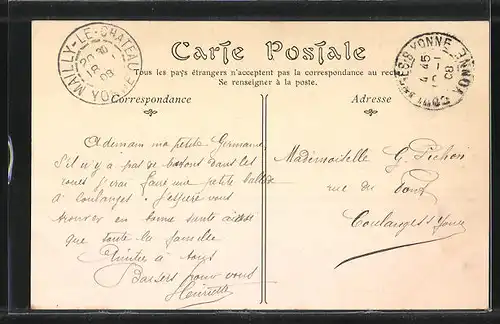 Carte Postale
Tous les pays étrangers n'acceptent pas la correspondance au recto
Se renseigner à la poste.
MAILLY-LE-CHATEAU
20
18
08
YONNE
45
08
YONNE
Correspondance
Adresse
A demain ma petite Germaine
S'il n'y a pas de dans les
roues j'irai faire une petite ballade
à Coulanges. J'espère vous
trouver en bonne santé
que toute la famille
à tous
Baisers pour vous
Henriette
Mademoiselle G. Pichon
rue du Pont
Coulanges s/ Yonne